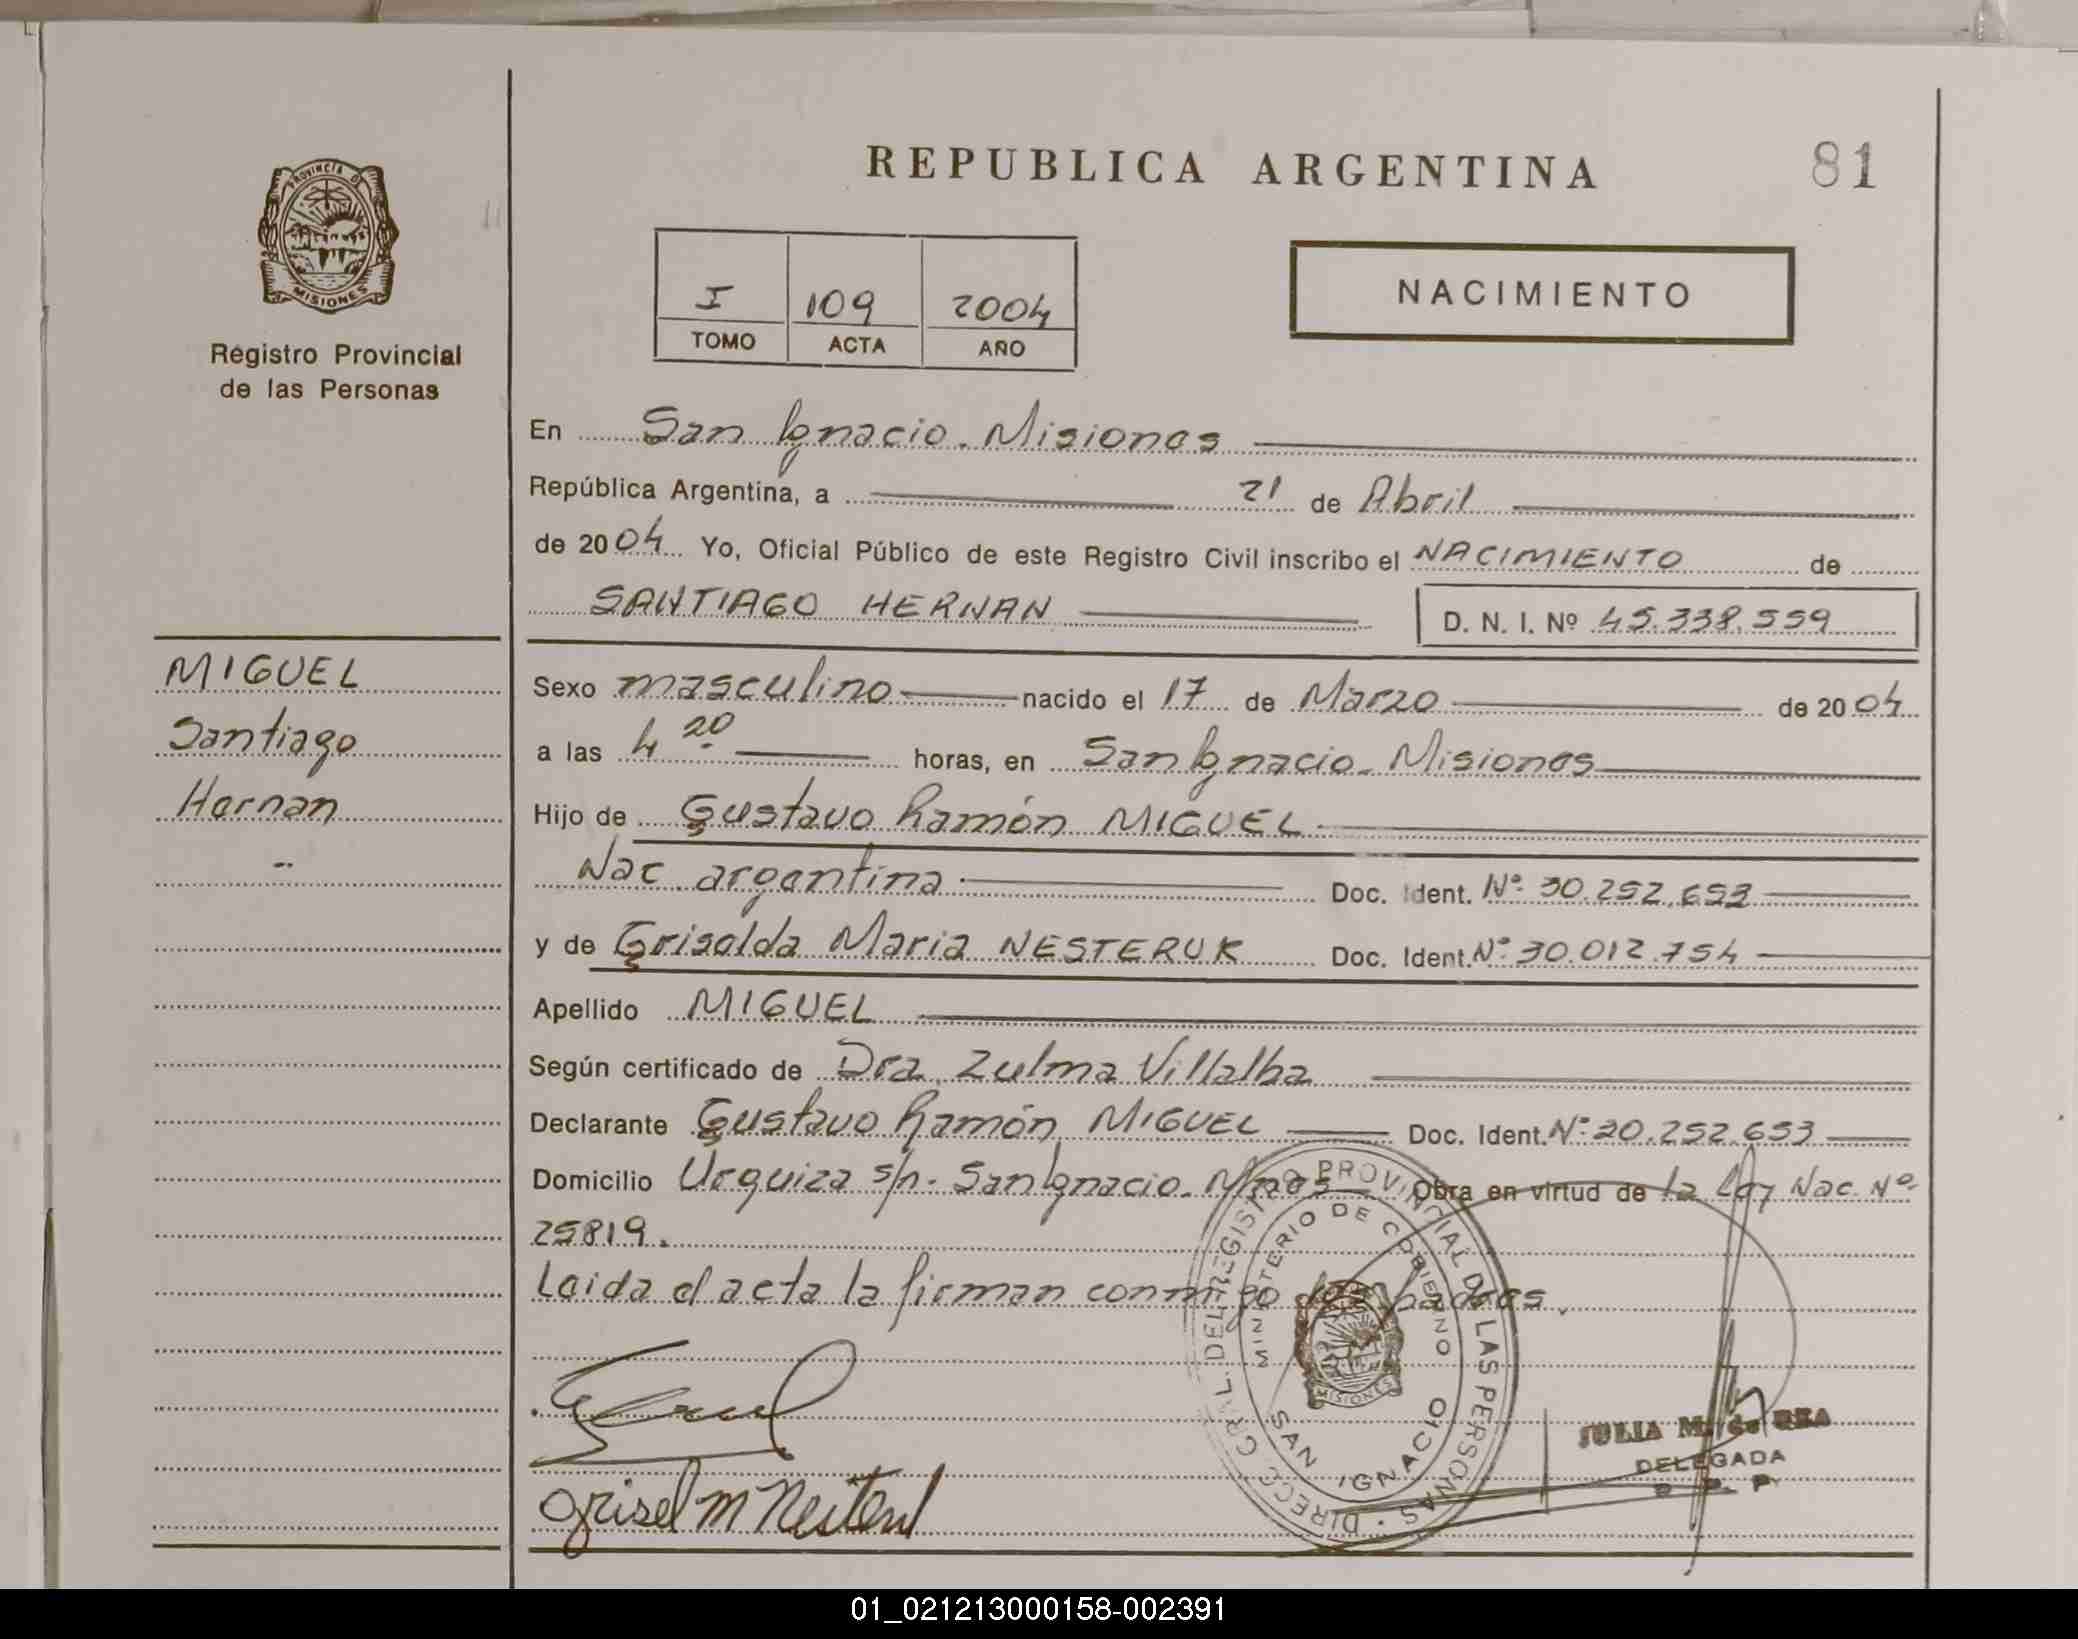 REPUBLICA ARGENTINA
81
PROVINCIA DE
MISIONES
Registro Provincial
de las Personas
I 109 2004
TOMO ACTA AÑO
NACIMIENTO
En San Ignacio. Misiones
República Argentina, a 21 de Abril
de 2004 Yo, Oficial Público de este Registro Civil inscribo el NACIMIENTO de
SANTIAGO HERNAN D. N. I. Nº 45.338.559
MIGUEL
Santiago
Hernan
Sexo masculino nacido el 17 de Marzo de 2004
a las 4 20 horas, en San Ignacio. Misiones
Hijo de Gustavo Ramón MIGUEL
Nac. argentina Doc. Ident. Nº 30.252.653
y de Griselda Maria NESTERUK Doc. Ident. Nº 30.012.754
Apellido MIGUEL
Según certificado de Dra. Zulma Villalba
Declarante Gustavo Ramón MIGUEL Doc. Ident. Nº 30.252.653
Domicilio Urquiza s/n. San Ignacio. Mnes Obra en virtud de la Ley Nac. Nº
25819.
Leida el acta la firman conmigo los padres.
Grisel M Nesteruk
DIRECC. GRAL. DEL REGISTRO PROVINCIAL DE LAS PERSONAS
MINISTERIO DE GOBIERNO
MISIONES
SAN IGNACIO
JULIA M. de REA
DELEGADA
R. P. P.
01_021213000158-002391